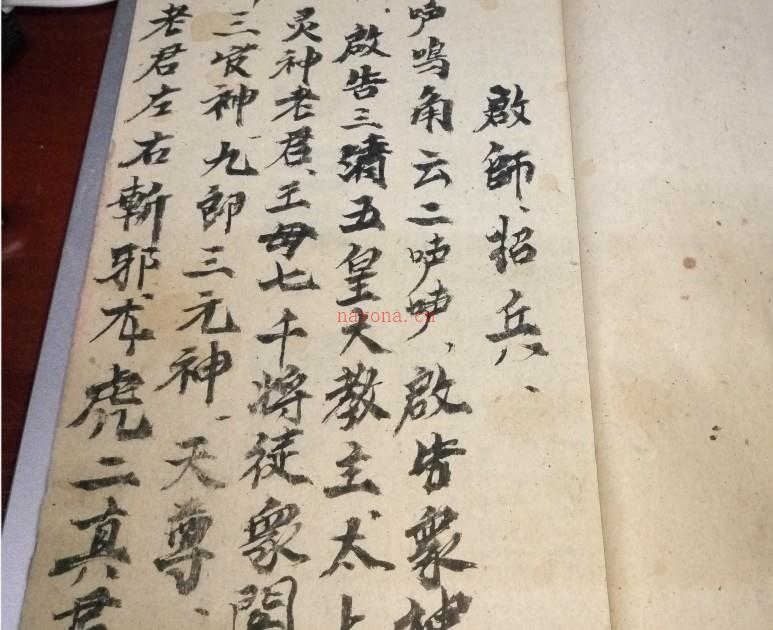 啟師、招兵、
吙鳴角云二吙吙，啟告衆神
啟告三清五皇大教主太上
灵神老君、王母七千将徒衆閭
三官神九郎三元神、天尊、
老君左右斬邪龙虎二真君
nayona.cn